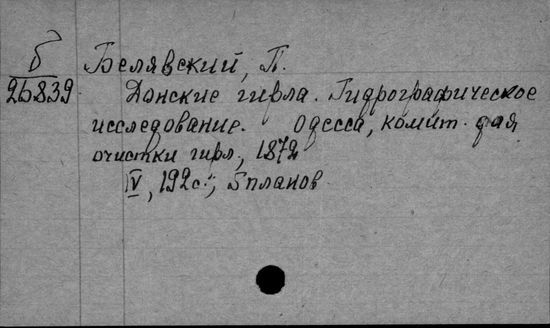 б
26839
Белявский, П.
Донские гирла. Гидрографическое
исследование. Одесса, комит. для
очистки гирл, 1872
IV, 192с.; 5планов